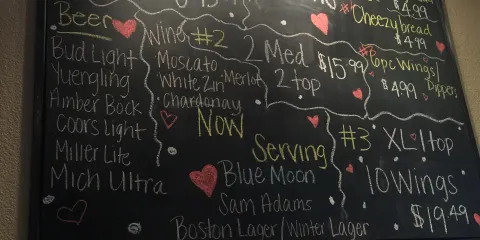 Beer
Bud Light
Yuengling
Amber Bock
Coors Light
Miller Lite
Mich Ultra
Wine
Moscato
White Zin Merlot
Chardonay
#2
2 Med
2 top
$15 99
$4.99
Cheezybread
$4.99
Wings/
Dippers
$4.99
Now
Serving
Blue Moon
Sam Adams
Boston Lager/Winter Lager
#3 XL 1top
10 Wings
$19 49